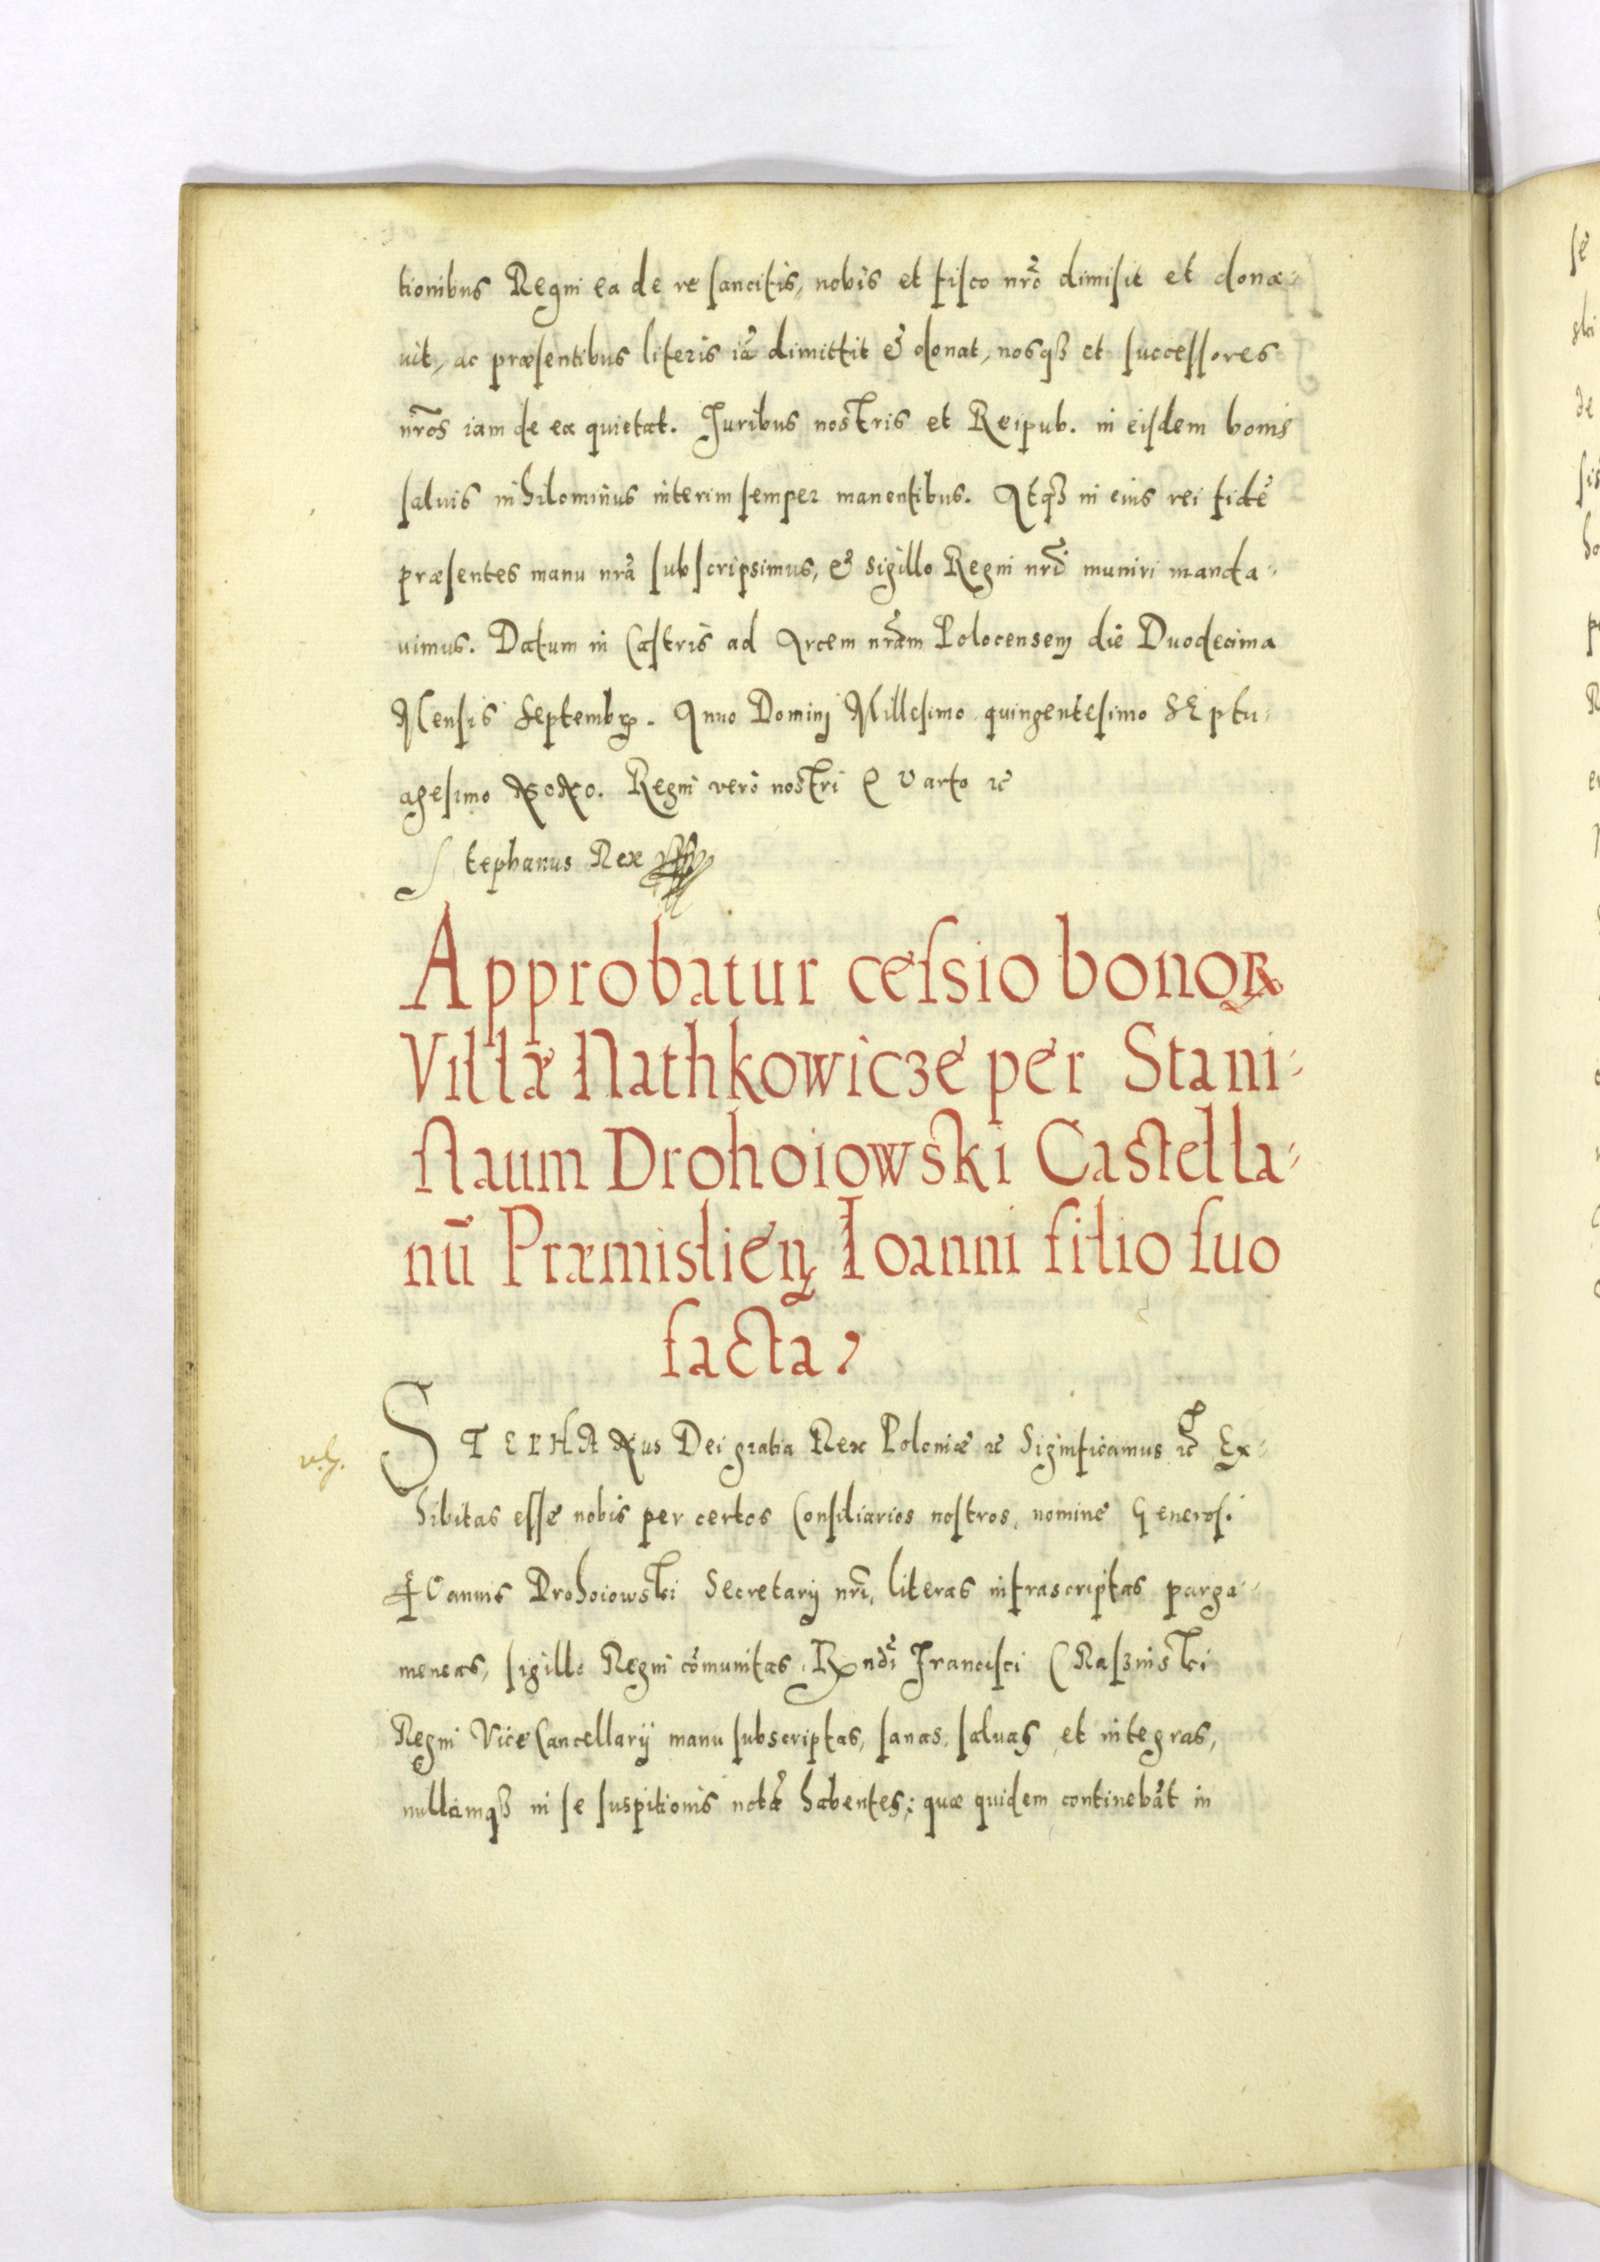 tionibus Regni ea de re sancitis, nobis et fisco nrõ dimisit et dona-
uit, ac præsentibus literis iã dimittit & donat, nosqꝫ et successores
nr̃os iam de ea quietat. Juribus nostris et Reipub. in eisdem bonis
saluis nihilominus interim semper manentibus. Atqꝫ in eius rei fidẽ
præsentes manu nrã subscripsimus, & sigillo Regni nrĩ muniri manda-
uimus. Datum in Castris ad Arcem nrãm Polocensem die Duodecima
Mensis Septembꝝ. Anno Dominj Millesimo quingentesimo SEptu-
agesimo NoNo. Regni vero nostri QVarto ꝛc
Stephanus Rex
Approbatur cessio bonoꝝ
Villæ Nathkowicze per Stani-
slaum Drohoiowski Castella-
nũ Præmislieñ Ioanni filio suo
facta,
STEPHANus Dei gratia Rex Poloniæ ꝛc Significamus ꝛc Ex-
hibitas esse nobis per certos Consiliarios nostros, nomine Generosi
IOannis Drohoiowski Secretarij nrĩ, literas infrascriptas parga-
meneas, sigillo Regni cõmunitas, Rndi Francisci CRasznski
Regni ViceCancellarij manu subscriptas, sanas, saluas, et integras,
nullamqꝫ in se suspitionis notã habentes; quæ quidem continebãt in